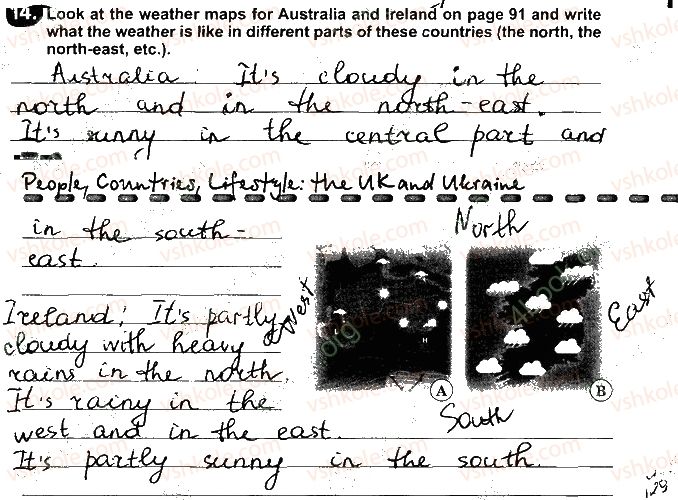 14. Look at the weather maps for Australia and Ireland on page 91 and write
what the weather is like in different parts of these countries (the north, the
north-east, etc.).
Australia: It's cloudy in the
north and in the north-east.
It's sunny in the central part and
People, Countries, Lifestyle: the UK and Ukraine
in the south-
east.
North
West
East
Ireland: It's partly
cloudy with heavy
rains in the north.
It's rainy in the
A
B
South
west and in the east.
It's partly sunny in the south.
vshkole.com